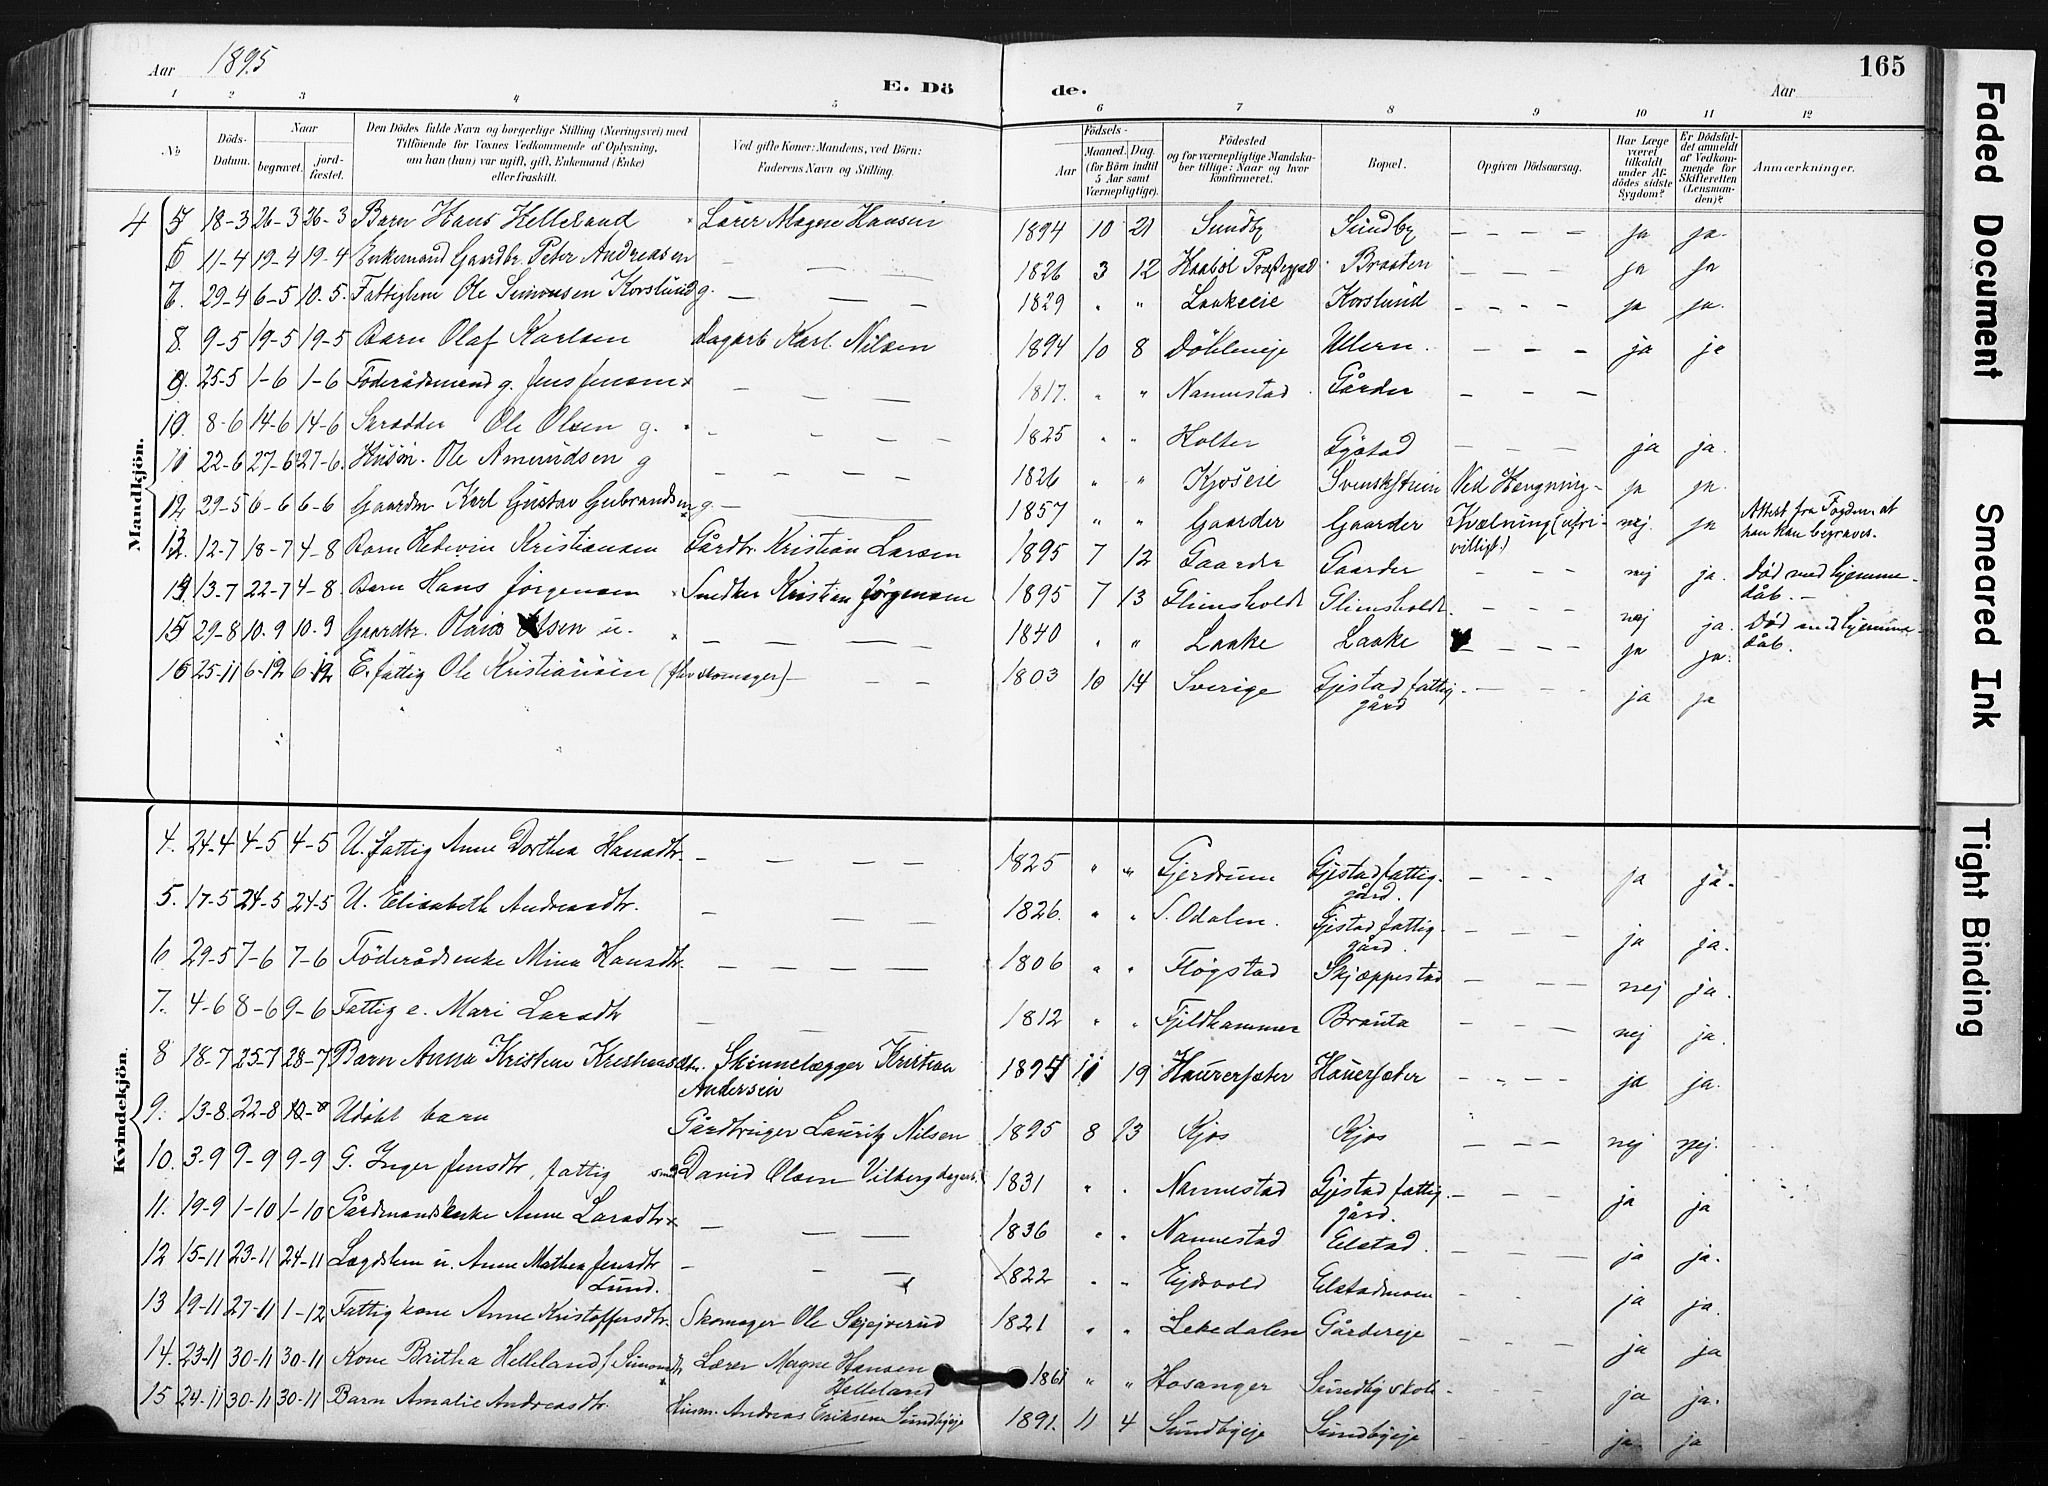 Aar 1895
E. Dö
de.
Aar
165
1 2 3 4 5 6 7 8 9 10 11 12
No
Döds-
Datum.
Naar
begravet.
jord-
fæstet.
Den Dödes fulde Navn og borgerlige Stilling (Næringsvei) med
Tilföiende for Voxnes Vedkommende af Oplysning,
om han (hun) var ugift, gift, Enkemand (Enke)
eller fraskilt.
Ved gifte Koner: Mandens, ved Börn:
Faderens Navn og Stilling.
Födsels-
Aar
Maaned.
Dag.
(for Börn indtil
5 Aar samt
Værnepligtige).
Födested
og for værnepligtige Mandska-
ber tillige: Naar og hvor
konfirmeret.
Bopæl.
Opgiven Dödsaarsag.
Har Læge
været
tilkaldt
under Af-
dödes sidste
Sygdom?
Er Dödsfal-
det anmeldt
af Vedkom-
mende for
Skifteretten
(Lensman-
den)?
Anmærkninger.
Mandkjön.
4 5 18-3 26-3 26-3 Barn Hans Helleland Lærer Magne Hansen 1894 10 21 Sundby Sundby — — — — ja ja.
6 11-4 19-4 19-4 Enkemand Gaardbr. Peter Andreasen — — — 1826 3 12 Braaten — — — — ja ja
7. 29-4 6-5 10-5. Fattiglem Ole Simonsen Korslund g. — — — 1829 " " Laakeeie Korslund — — — — ja ja.
8. 9-5 19-5 19-5 Barn Olaf Karlsen Dagarb. Karl Nilsen 1894 10 8 Döhleneje Ullern. — — — ja ja
9. 25-5 1-6 1-6 Föderådsmand g. Jens Jensen — — — 1817. " " Nannestad Gårder — — —
10 8-6 14-6 14-6 Skrædder Ole Olsen g. — — — — 1825 " " Holter Gjöstad — — — — ja ja.
11 22-6 27-6 27-6. Husm. Ole Amundsen g — — — — 1826 " " Kjöseie Svenskstuen Ved Hængning- ja ja.
12 29-5 6-6 6-6 Gaardm. Karl Gustav Gulbrandsen g. — — — 1857 " " Gaarder Gaarder Kvælning (ufri- nej. ja Attest fra Fogden, at
villigt.) han kan begraves.
13. 12-7 18-7 4-8 Barn Hedevin Kristiansen Gårdbr. Kristian Larsen 1895 7 12 Gaarder Gaarder — — — nej ja. Död med hjemme-
dåb. —
14 13-7 22-7 4-8 Barn Hans Jörgensen Snedker Kristian Jörgensen 1895 7 13 Glimsholdt Glimsholdt. — — — — nej ja. Död med hjemme-
dåb.
15 29-8 10.9 10.9 Gaardbr. Olaus Olsen u. — — — — 1840 " " Laake Laake — — — — ja ja.
16 25-11 6-12 6-12 E. fattig Ole Kristiansen (fhv. skomager) — — — 1803 10 14 Sverige Gjestad fattig- — — — ja ja
gård
Kvindekjön.
4. 24-4 4-5 4-5 U. fattig Anne Dorthea Hansdtr. — — — — 1825 " " Gjerdrum Gjestad fattig- — — — ja ja.
gård.
5. 17-5 24-5 24-5 U. Elisabeth Andreasdtr. — — — — 1826. " " S. Odalen. Gjestad fattig- — — — ja ja.
gård.
6 29-5 7-6 7-6 Föderådsenke Mina Hansdtr. — — — — 1806 " " Flögstad Skjæppestad — — — — nej ja.
7. 4-6 8-6 9-6 Fattig e. Mari Larsdtr — — — — 1812 " " Fjeldhammer Brauta — — — nej ja.
8 18-7 25-7 28-7 Barn Anna Kristine Kristiansdtr. Skinnelægger Kristian
Andersen 1894 11 19 Haurersæter Hauersæter — — — ja ja.
9. 13-8 22-8 Udöbt barn Gårdbruger Lauritz Nilsen 1895 8 13 Kjos Kjos — — — nej nej.
10. 3-9 9-9 9-9 G. Inger Jensdtr, fattig David Olsen Vilberg dagarb. 1831 " " Nannestad Gjestad fattig- — — — ja ja
gård.
11. 19-9 1-10 1-10 Gårdmandsenke Anne Larsdtr — — — 1836 " " Nannestad Elstad. — — — ja ja.
12 15-11 23-11 24-11 Lægdslem u. Anne Mathea Jensdtr
Lund. — — — 1822 " " Eidsvold Elstadmoen — — — ja ja.
13 19-11 27-11 1-12 Fattig kone Anne Kristoffersdtr. Skomager Ole Skjejverud 1821 " " Lekedalen Gårdereje — — — ja ja
14. 23-11 30-11 30-11 Kone Britha Helleland f. Simonsdtr Lærer Magne Hansen
Helleland 1861 " " Hosanger Sundby skole — — — ja ja.
15 24-11 30-11 30-11 Barn Amalie Andreasdtr. Husm. Andreas Eriksen Sundbyeje 1891. 11 4 Sundbyeje Sundbyeje — — — ja ja
Faded Document
Smeared Ink
Tight Binding